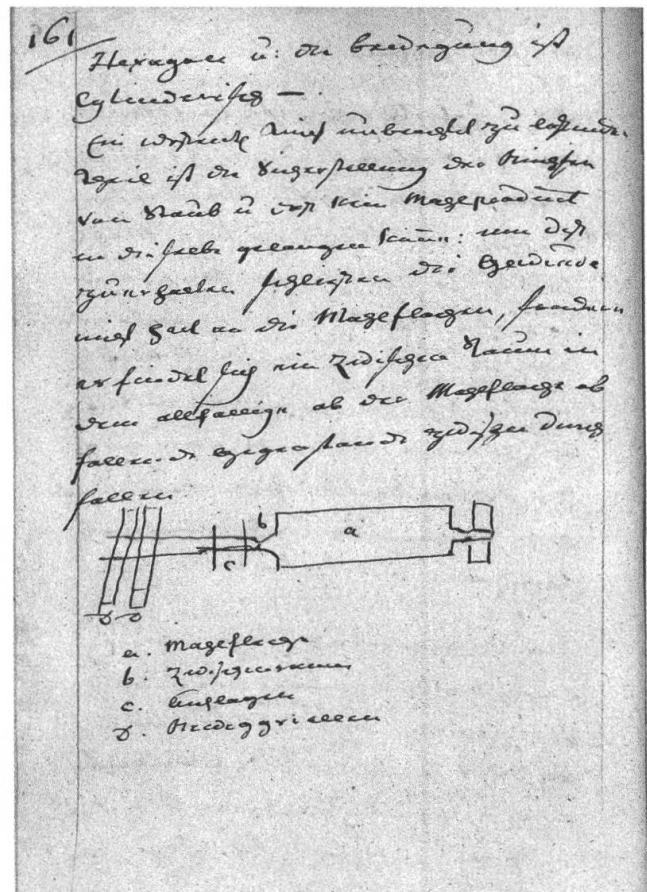 161
Hexagon u: die bewegung ist
Cylinderisch —
Ein
theil ist die Sicherstellung der
von Staub u das kein Mageproduct
in dieselbe gelangen kann: um dis
zu erhalten schliessen die Gewinde
nicht hart an die Mageflachen, sondern
er findet sich ein zwischen Raum in
dem allfallige ab der Mageflache ab
fallende gegenstande zwischen durch
fallen
b
a
c
d d
a. Mageflache
b. Zwischenraum
c.
d.